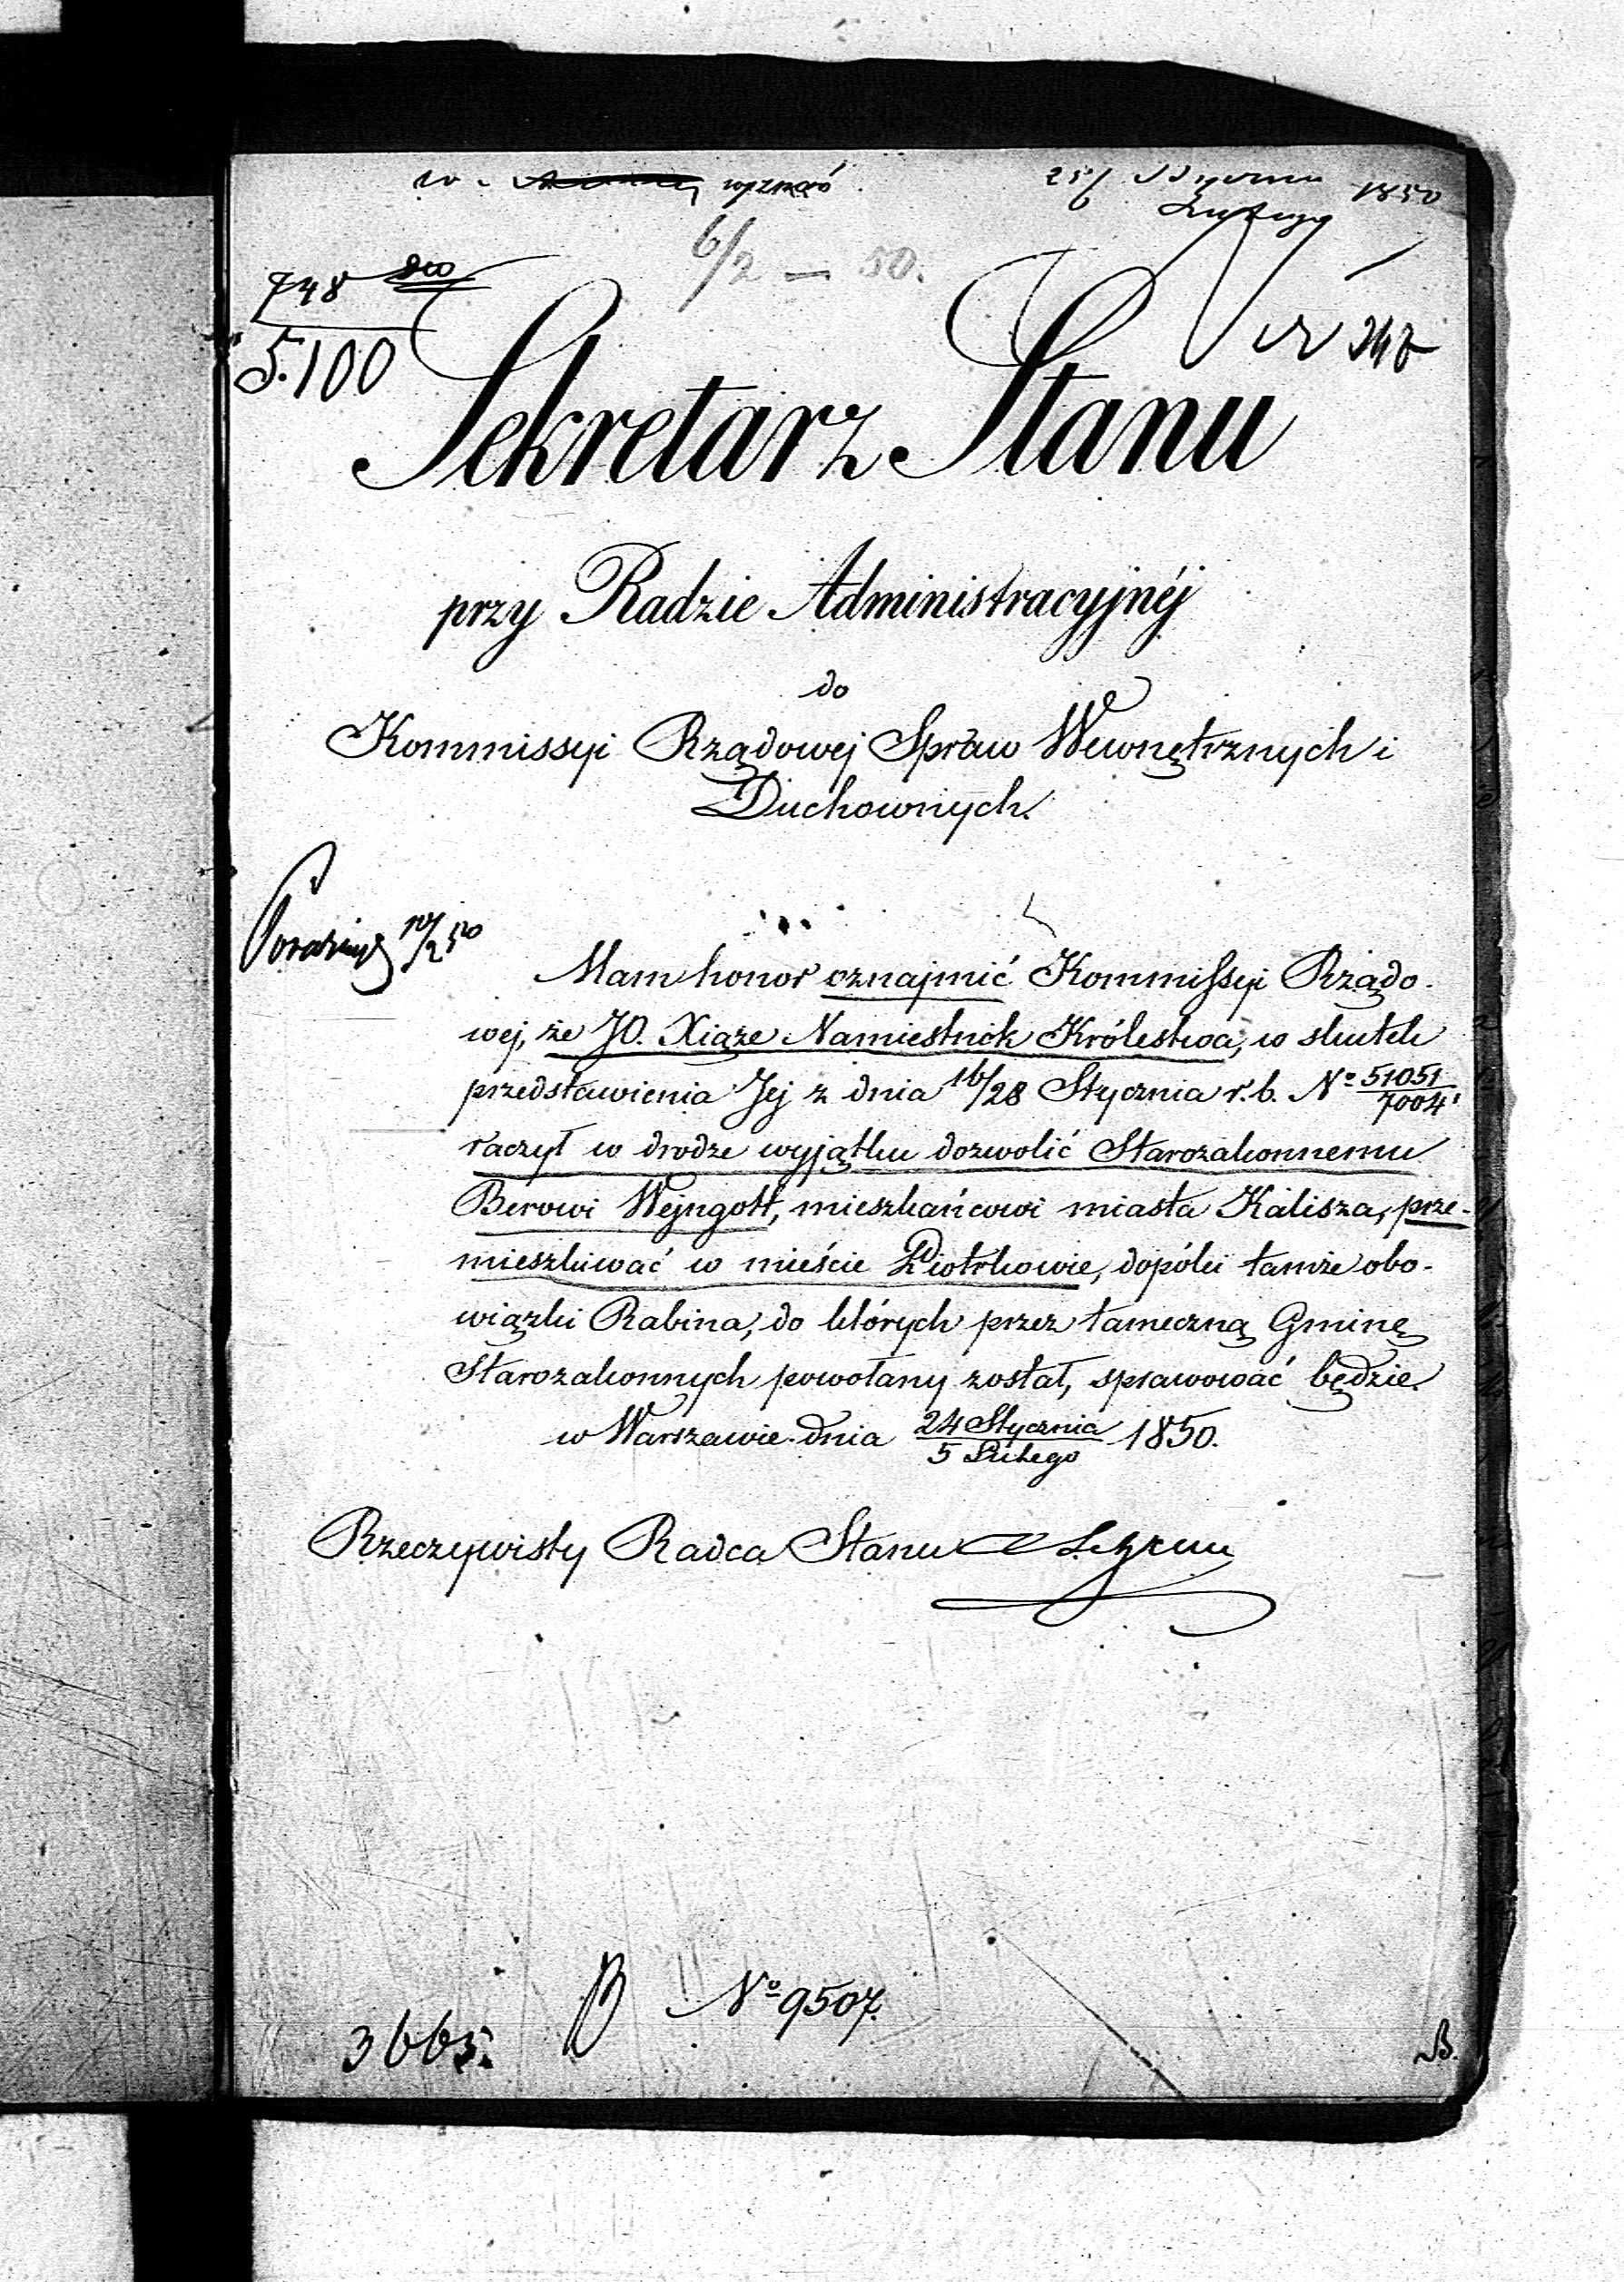 w. wyznań
25/6 Stycznia Lutego 1850
6/2 — 50.
748
5.100
Sekretarz Stanu
przy Radzie Administracyjnéj
do
Kommissyi Rządowej Spraw Wewnętrznych i
Duchownych.
10/2 50
Mam honor oznajmić Kommissyi Rządo-
wej, że JO. Xiąże Namiestnik Królestwa, w skutek
przedstawienia Jej z dnia 16/28 Stycznia r.b. No 51051/7004
raczył w drodze wyjątku dozwolić Starozakonnemu
Berowi Wejngott, mieszkańcowi miasta Kalisza, prze-
mieszkiwać w mieście Piotrkowie, dopóki tamże obo-
wiązki Rabina, do których przez tameczną Gminę
Starozakonnych powołany został, sprawować będzie.
w Warszawie dnia 24 Stycznia/5 Lutego 1850.
Rzeczywisty Radca Stanu
No 9507.
3665.
B.